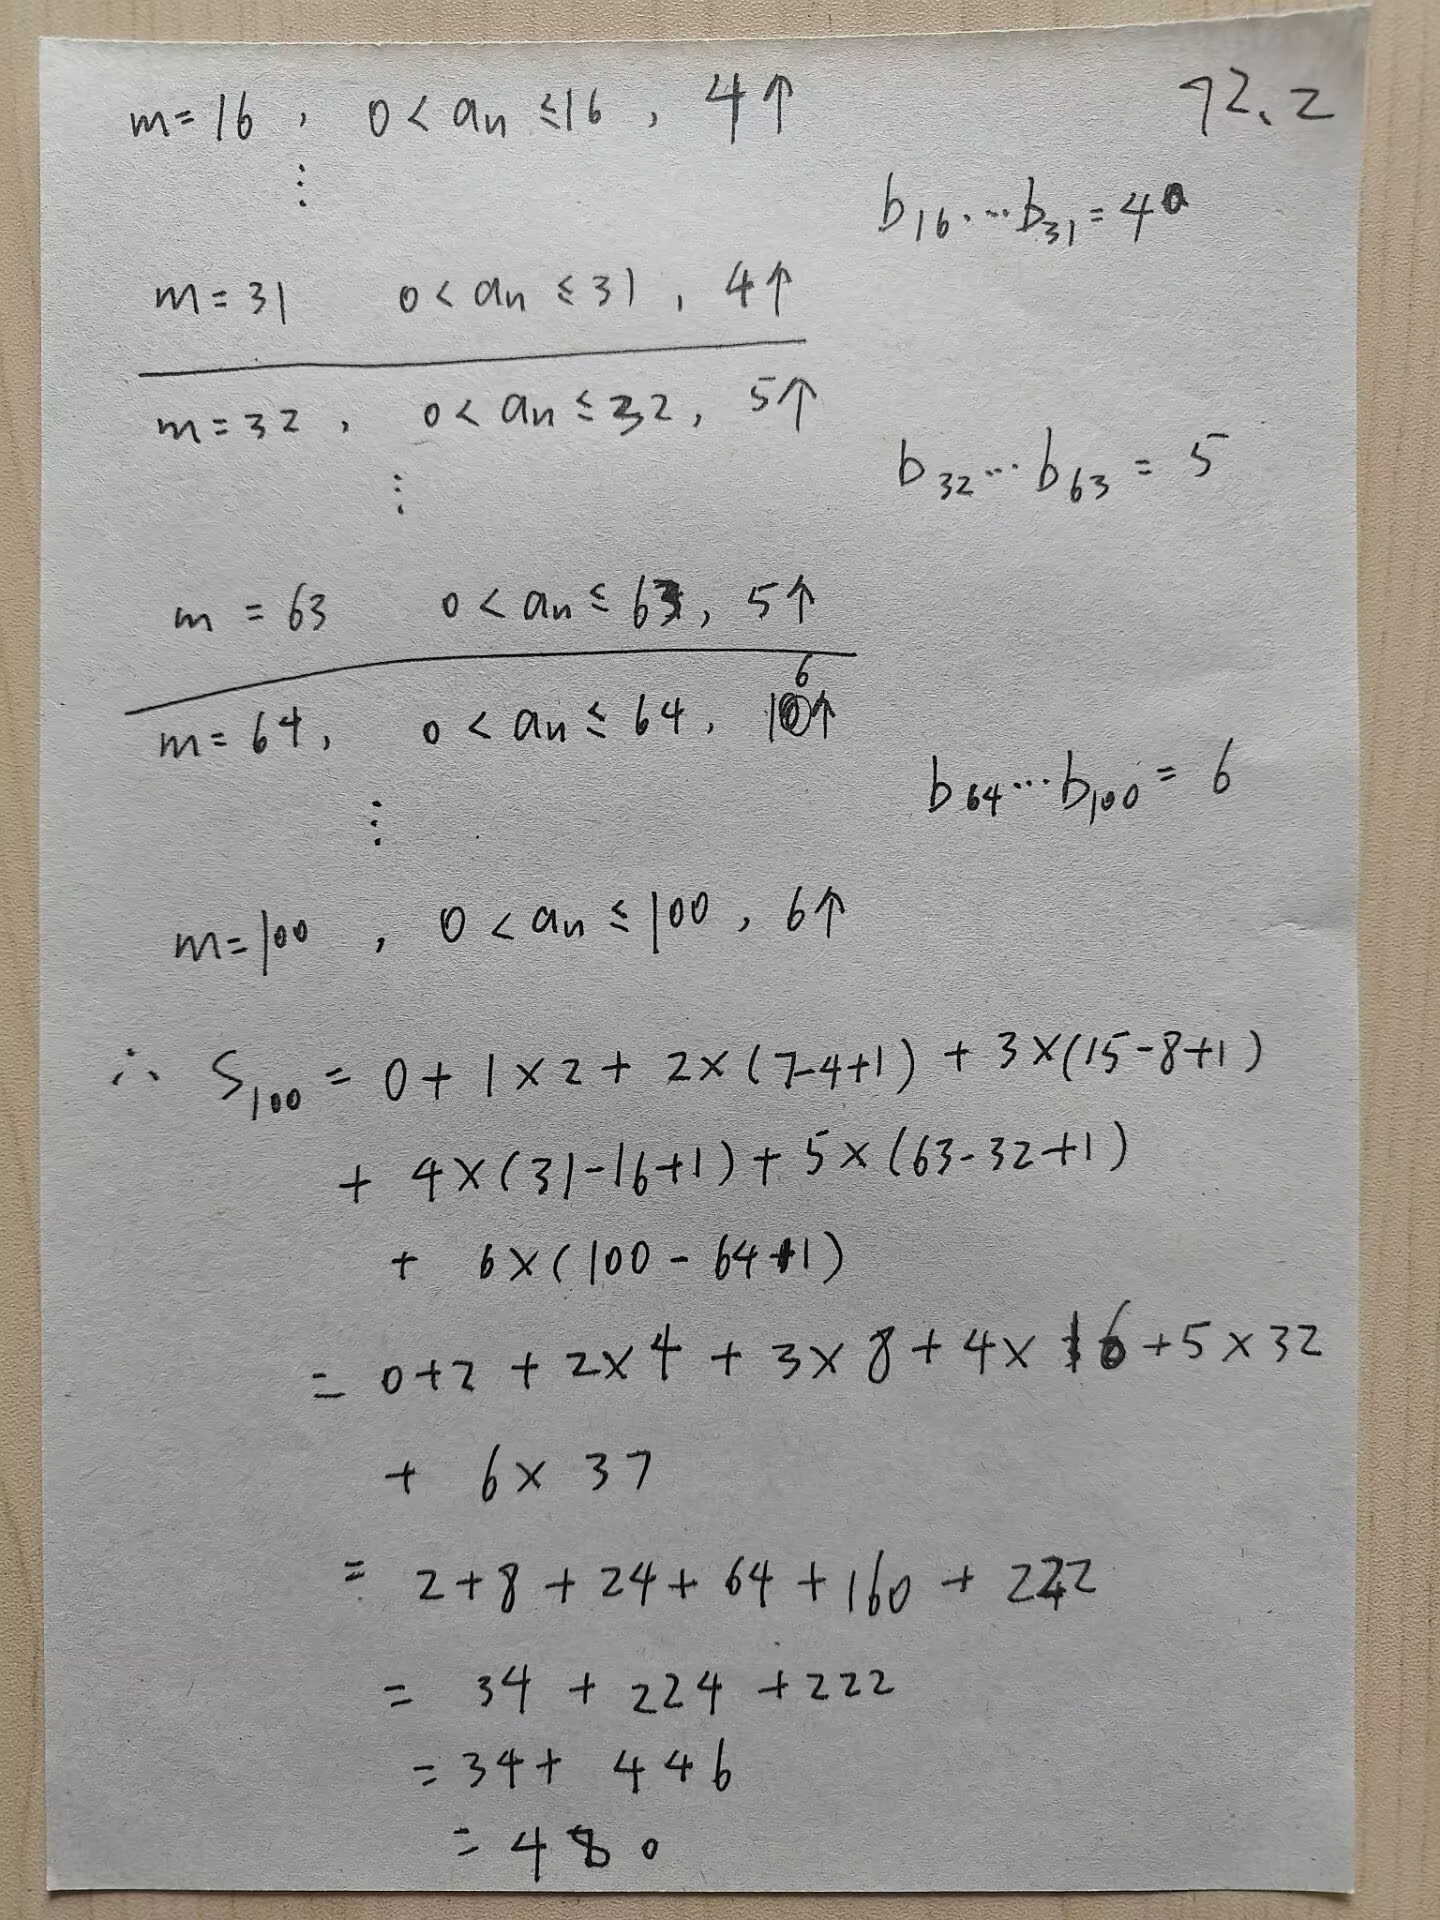 72.2
m=16, 0<aₙ≤16, 4个
⋮
b₁₆...b₃₁=4
m=31 0<aₙ≤31, 4个
m=32, 0<aₙ≤32, 5个
⋮
b₃₂...b₆₃=5
m=63 0<aₙ≤63, 5个
m=64, 0<aₙ≤64, 6个
⋮
b₆₄...b₁₀₀=6
m=100, 0<aₙ≤100, 6个
∴ S₁₀₀=0+1×2+2×(7-4+1)+3×(15-8+1)
+4×(31-16+1)+5×(63-32+1)
+6×(100-64+1)
=0+2+2×4+3×8+4×16+5×32
+6×37
=2+8+24+64+160+222
=34+224+222
=34+446
=480